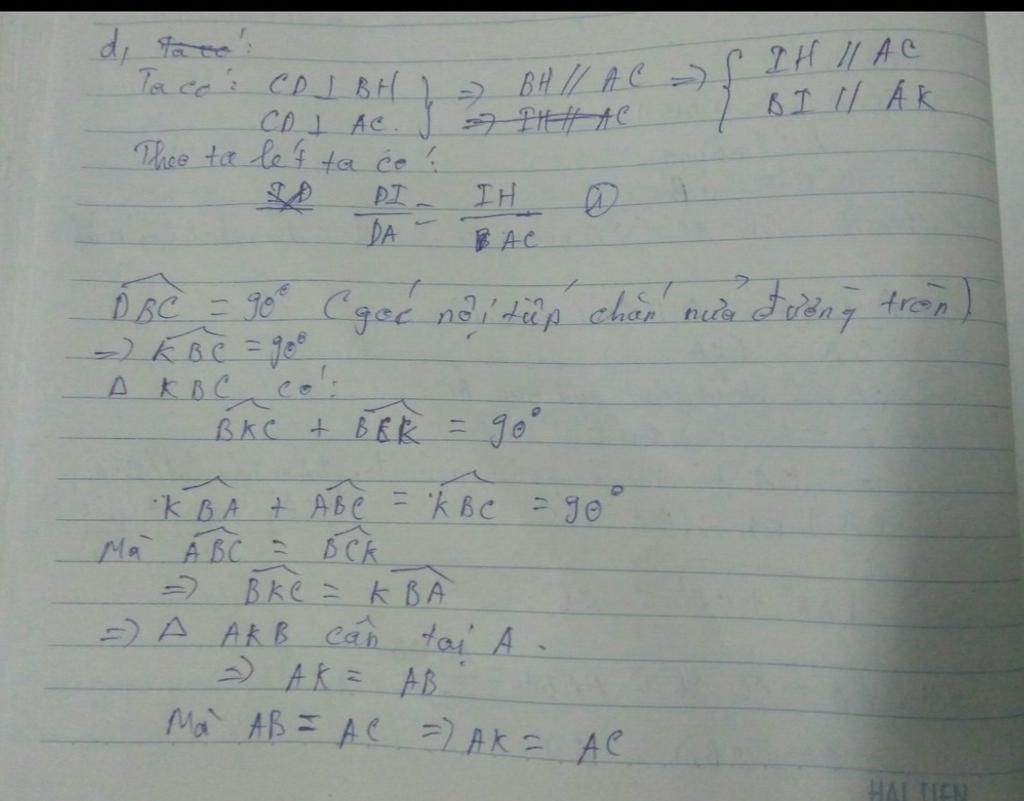 d, Ta có:
Ta có: CD ⊥ BH } => BH // AC => { IH // AC
CD ⊥ AC. } => IH // AC { BI // AK
Theo ta lét ta có:
ID DI/DA = IH/AC ①
DBC^ = 90° (góc nội tiếp chắn nửa đường tròn)
=> KBC^ = 90°
Δ KBC có:
BKC^ + BCK^ = 90°
KBA^ + ABC^ = KBC^ = 90°
Mà ABC^ = BCK^
=> BKC^ = KBA^
=> Δ AKB cân tại A.
=> AK = AB
Mà AB = AC => AK = AC
HẢI TIẾN